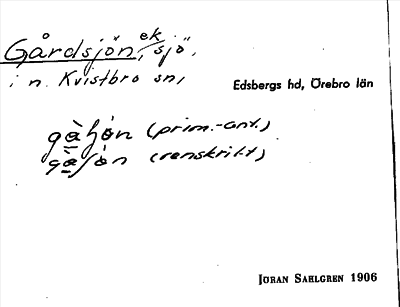 Gårdsjön, ek. sjö,
i n. Kvistbro sn,
Edsbergs hd, Örebro län
(prim.-ant.)
(renskrift)
JÖRAN SAHLGREN 1906